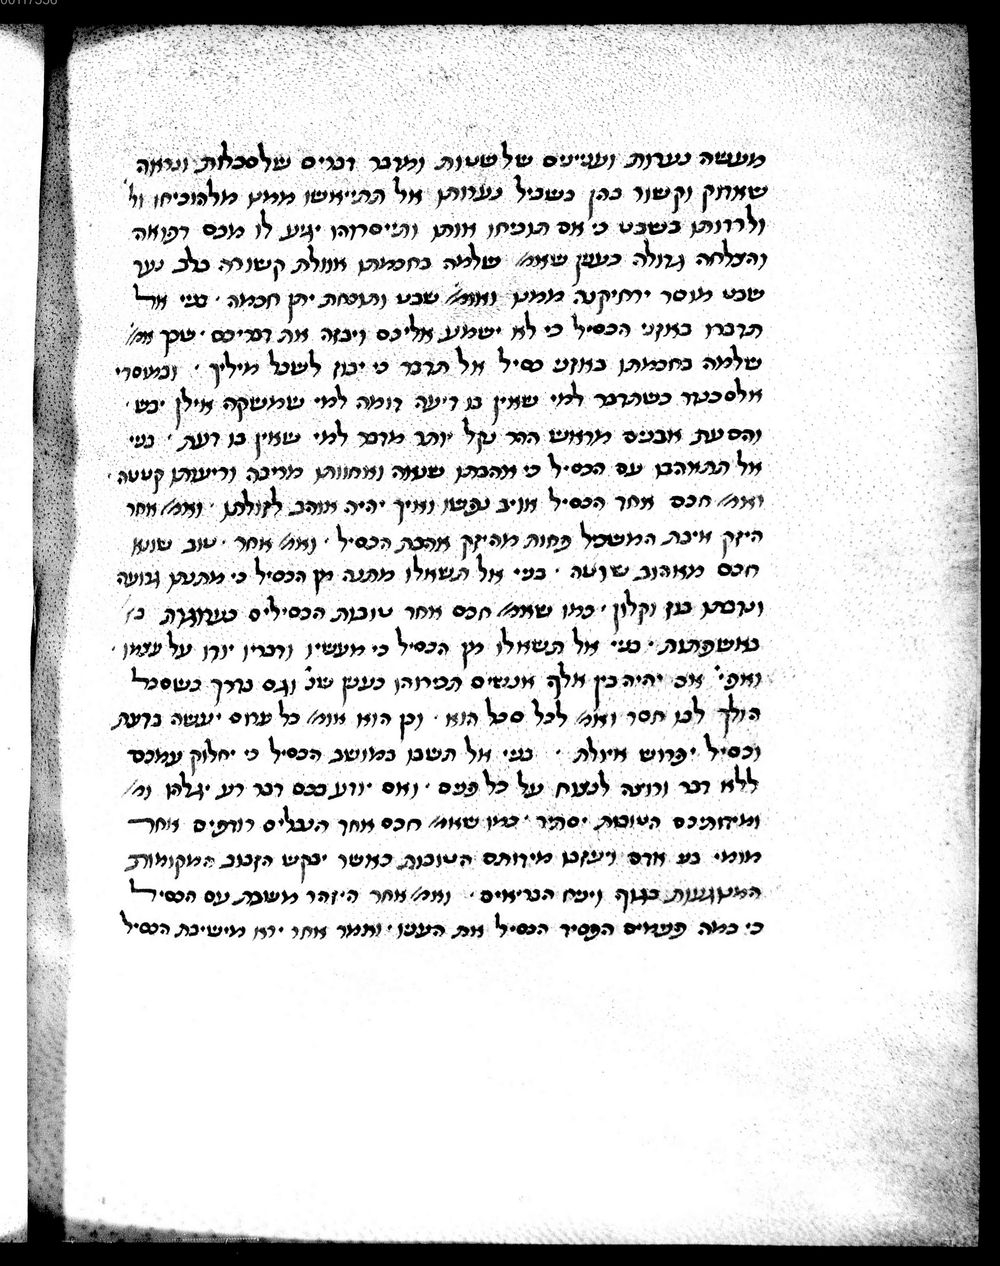 מעשה נערות וענינים של שטות ומדבר דברים של סכלות ונראה
שאדוק וקשור בהן בשביל נערותו אל תתייאשו ממנו מלהוכיחו ול'
ולרדותו בשבט כי אם תוכיחו אותו ותייסרוהו יגיע לו מכם רפואה
והצלחה גדולה כענין שאמ' שלמה בחכמתו אוולת קשורה בלב נער
שבט מוסר ירחיקנה ממנו ואמ' שבט ותוכחת יתן חכמה · בני אל
תדברו באזני הכסיל כי לא ישמע אליכם ויבזה את דבריכם · שכך אמ'
שלמה בחכמתו באזני כסיל אל תדבר כי יבוז לשכל מיליך · ובמוסרי
אלסכנדר כשתדבר למי שאין בו דיעה דומה למי שמשקה אילן יבש ·
והסעת אבנים מראש ההר נקל יותר מדבר למי שאין בו דעת · בני
אל תתאהבו עם הכסיל כי אהבתו שנאה ואחוותו מריבה וריעותו קטטה ·
ואמ' חכם אחד הכסיל אויב נפשו ואיך יהיה אוהב לזולתו · ואמ' אחר
היזק איבת המשכיל פחות מהיזק אהבת הכסיל · ואמ' אחר · טוב שונא
חכם מאהוב שוטה · בני אל תשאלו מתנה מן הכסיל כי מתנתו גרועה
ונדבתו בוז וקלון · כמו שאמ' חכם אחד טובות הכסילים כערוגות בי'
באשפתות · בני אל תשאלו מן הכסיל כי מעשיו ודבריו יורו על עצמו ·
ואפי' אם יהיה בין אלף אנשים תכירוהו כענין שנ' וגם בדרך כשסכל
הולך לבו חסר ואמ' לכל סכל הוא · וכן הוא אומ' כל ערום יעשה בדעת
וכסיל יפרוש איולת · בני אל תשבו במושב הכסיל כי יחלוק עמכם
ללא דבר ורוצה לנצח על כל פנים · ואם יודע בכם דבר רע יגלהו ומ'
ומידותיכם הטובות יסתיר · כמו שאמ' חכם אחד הנבלים רודפים אחר
מומי בני אדם ויעזבו מידותם הטובות כאשר יבקש הזבוב המקומות
המנוגעות בגוף ויניח הבריאים · ואמ' אחר היזהר משבת עם הכסיל
כי כמה פעמים הפסיד הכסיל את העניו · ואמר אחר ירא מישיבת הכסיל